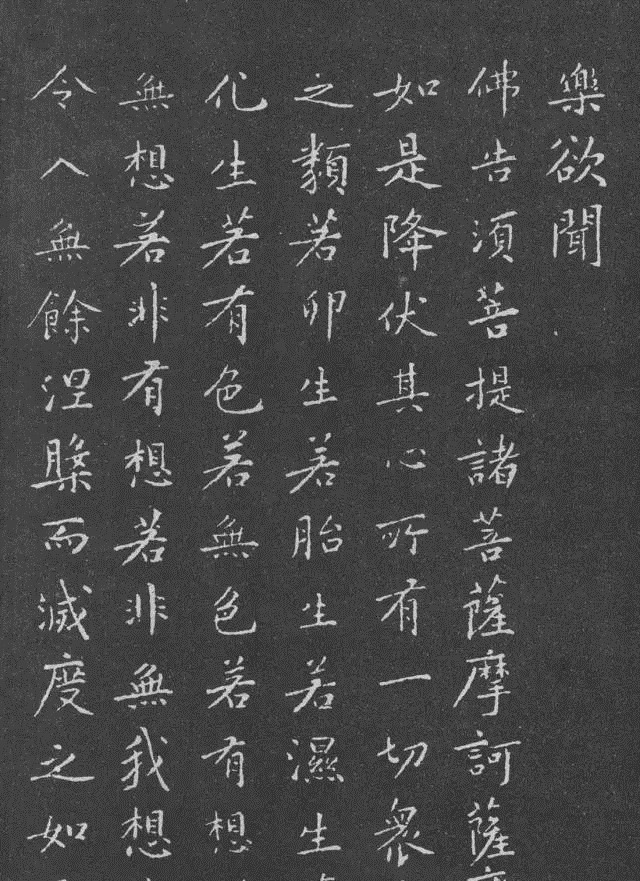 樂欲聞
佛告須菩提諸菩薩摩訶薩
如是降伏其心所有一切眾
之類若卵生若胎生若濕生
化生若有色若無色若有想
無想若非有想若非無我想
令入無餘涅槃而滅度之如